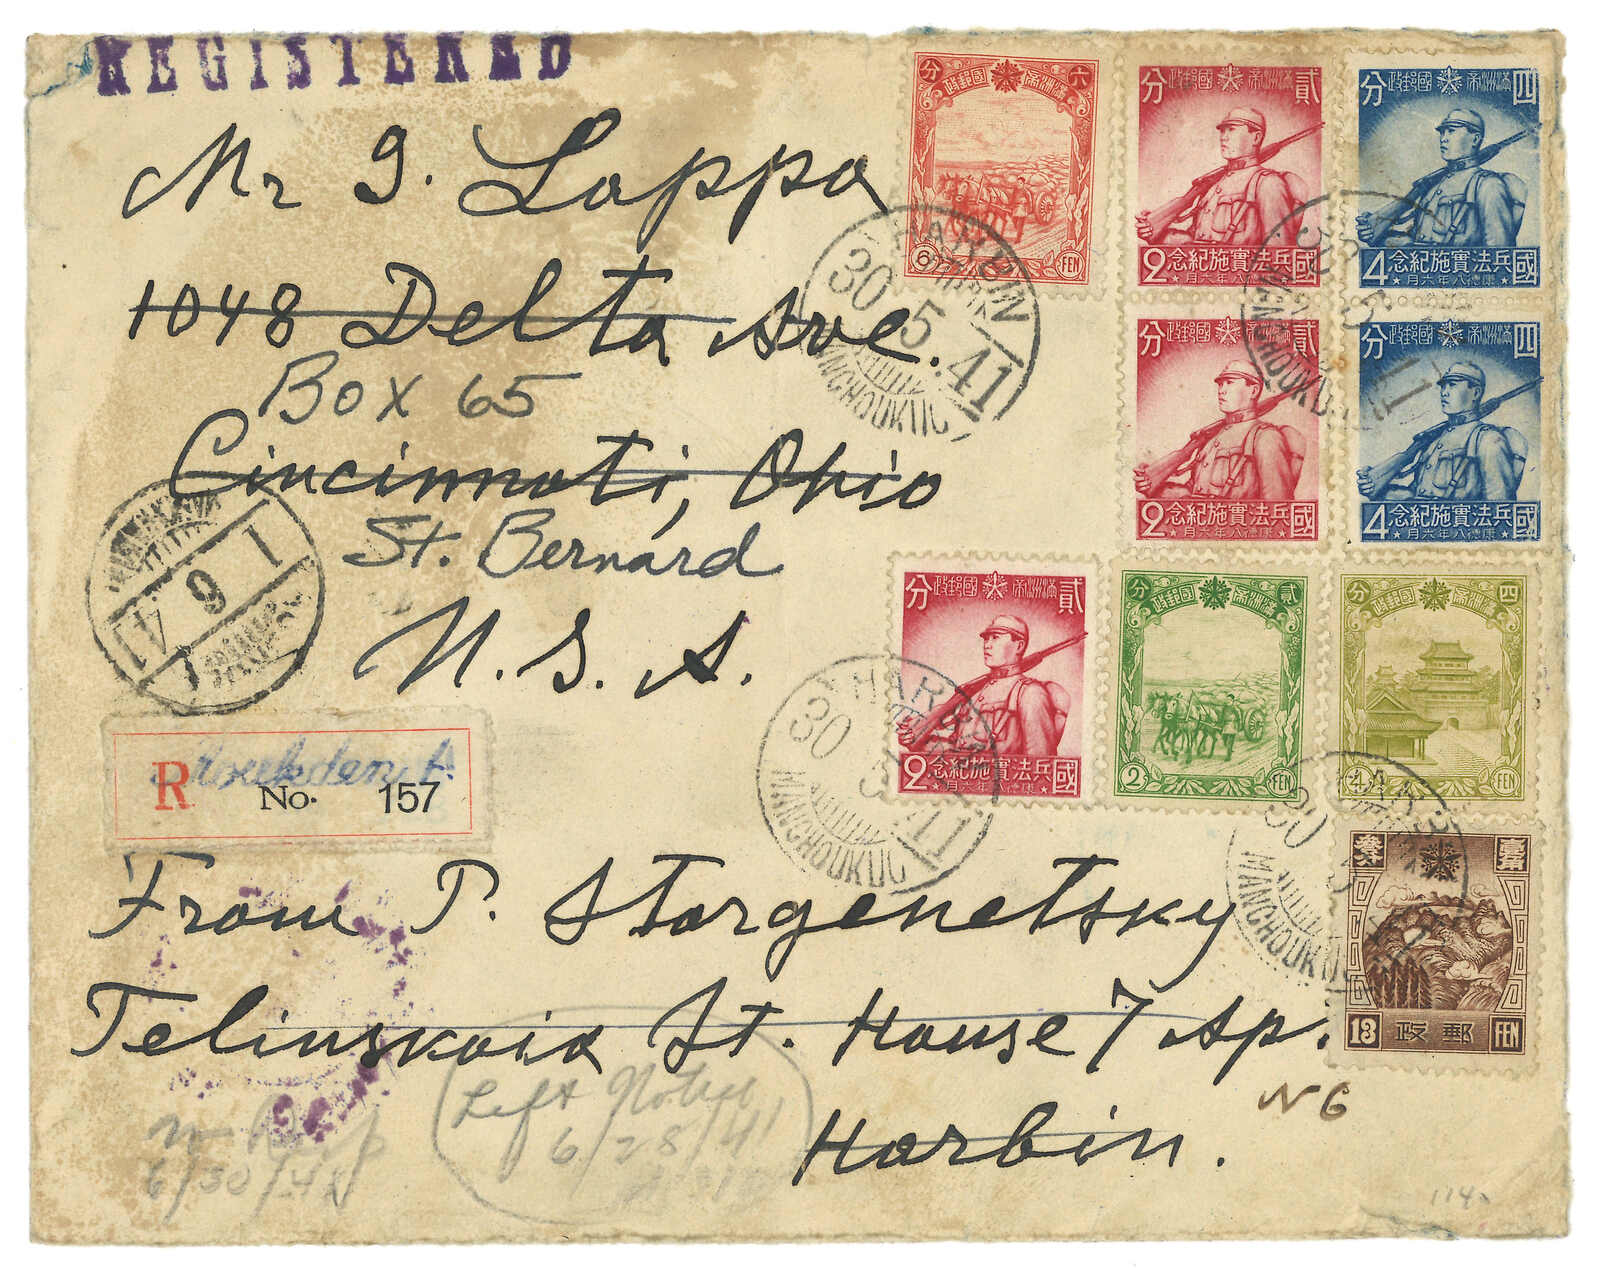 REGISTERED
Mr J. Lappa
1048 Delta Ave.
Box 65
Cincinnati, Ohio
St. Bernard
U. S. A.
R Moukden A.
No. 157
From P. Storgenetsky
Telinskaia St. House 7 Ap.
N 6
Harbin.
Left Notice
6/28/41
6/30/41
114
分 政郵國帝洲滿 六
6 FEN
分 政郵國帝洲滿 貳
2 念紀施實法兵國
月六年八德康
分 政郵國帝洲滿 四
4 念紀施實法兵國
月六年八德康
分 政郵國帝洲滿 貳
2 念紀施實法兵國
月六年八德康
分 政郵國帝洲滿 四
4 念紀施實法兵國
月六年八德康
分 政郵國帝洲滿 貳
2 念紀施實法兵國
月六年八德康
分 政郵國帝洲滿 貳
2 FEN
分 政郵國帝洲滿 四
4 FEN
13 政郵 FEN
HARBIN
30 5 41
MANCHOUKUO
HARBIN
30 5 41
MANCHOUKUO
HARBIN
30 5 41
MANCHOUKUO
30 5 41
MANCHOUKUO
1 6 41